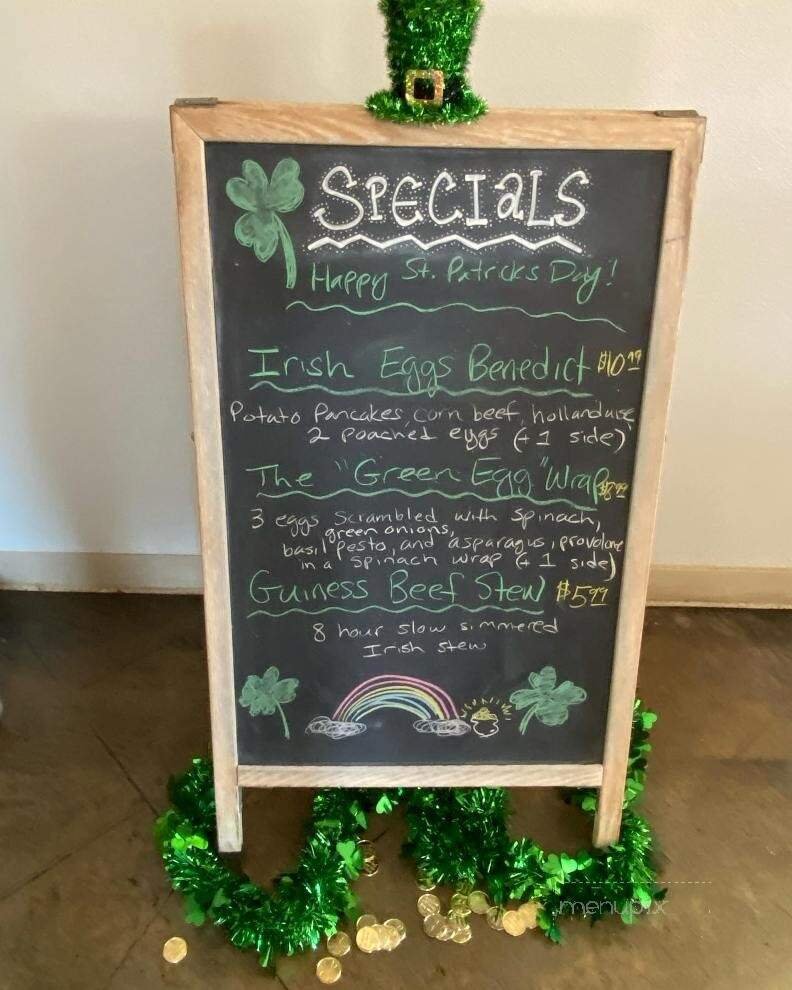 SPECIaLS
Happy St. Patricks Day!
Irish Eggs Benedict $10.99
Potato Pancakes, corn beef, hollandaise
2 poached eggs (+ 1 side)
The "Green Egg" Wrap $8.99
3 eggs scrambled with spinach,
green onions,
basil pesto, and asparagus, provolone
in a spinach wrap (+ 1 side)
Guiness Beef Stew $5.99
8 hour slow simmered
Irish stew
menupix